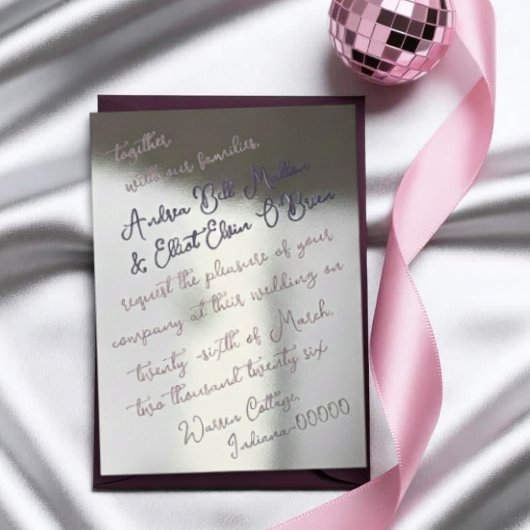 together,
with our families,
Andrea Bell Mullan
& Elliot Elvin O'Brien
request the pleasure of your
company at their wedding on
twenty-sixth of March,
two thousand twenty six
Warren Cottage,
Indiana-00000